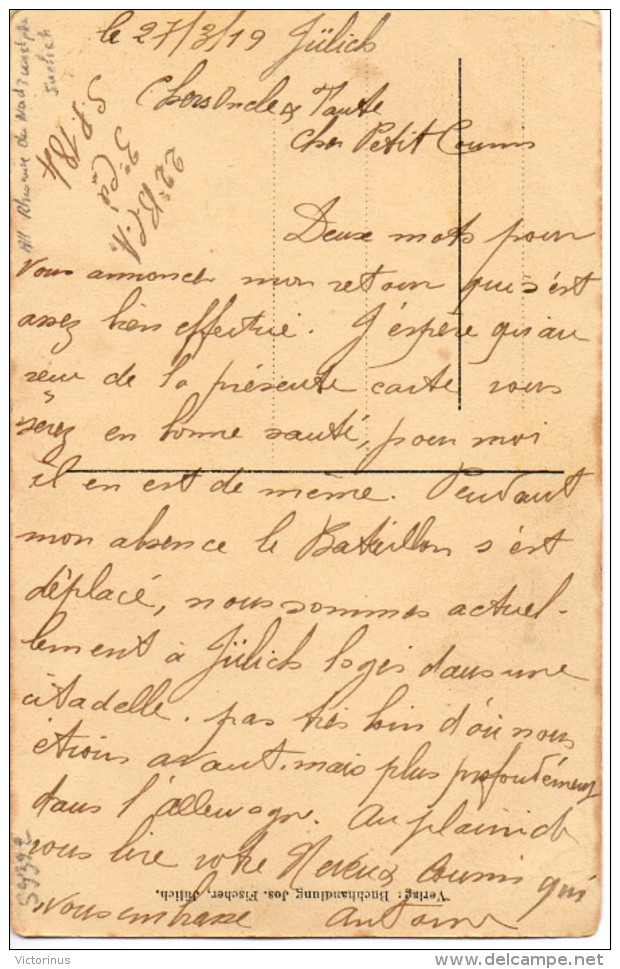 le 27/3/19 Jülich
Chers Oncle & Tante
Cher Petit Cousin
22e B.C.A.
3e Cie
S.P. 184
Deux mots pour
vous annoncer mon retour qui s'est
assez bien effectué. J'espère qu'au
reçu de la présente carte vous
serez en bonne santé, pour moi
il en est de même. Pendant
mon absence le Bataillon s'est
déplacé, nous sommes actuel-
lement à Jülich logés dans une
citadelle. pas très loin d'où nous
étions avant. mais plus profondément
dans l'Allemagne. Au plaisir de
vous lire votre Neveu & Cousin qui
vous embrasse Antoine
Verlag: Buchhandlung Jos. Fischer, Jülich.
All Rhénanie du Nord
Juelich
Victorinus
delcampe.net